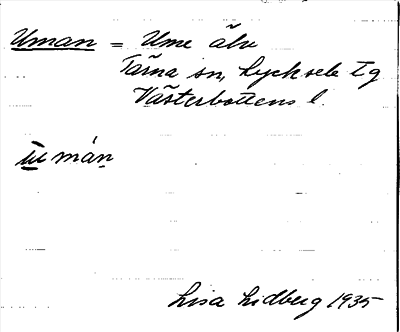 Uman = Ume älv
Tärna sn, Lycksele tg
Västerbottens l.
ūmán
Lisa Lidberg 1935